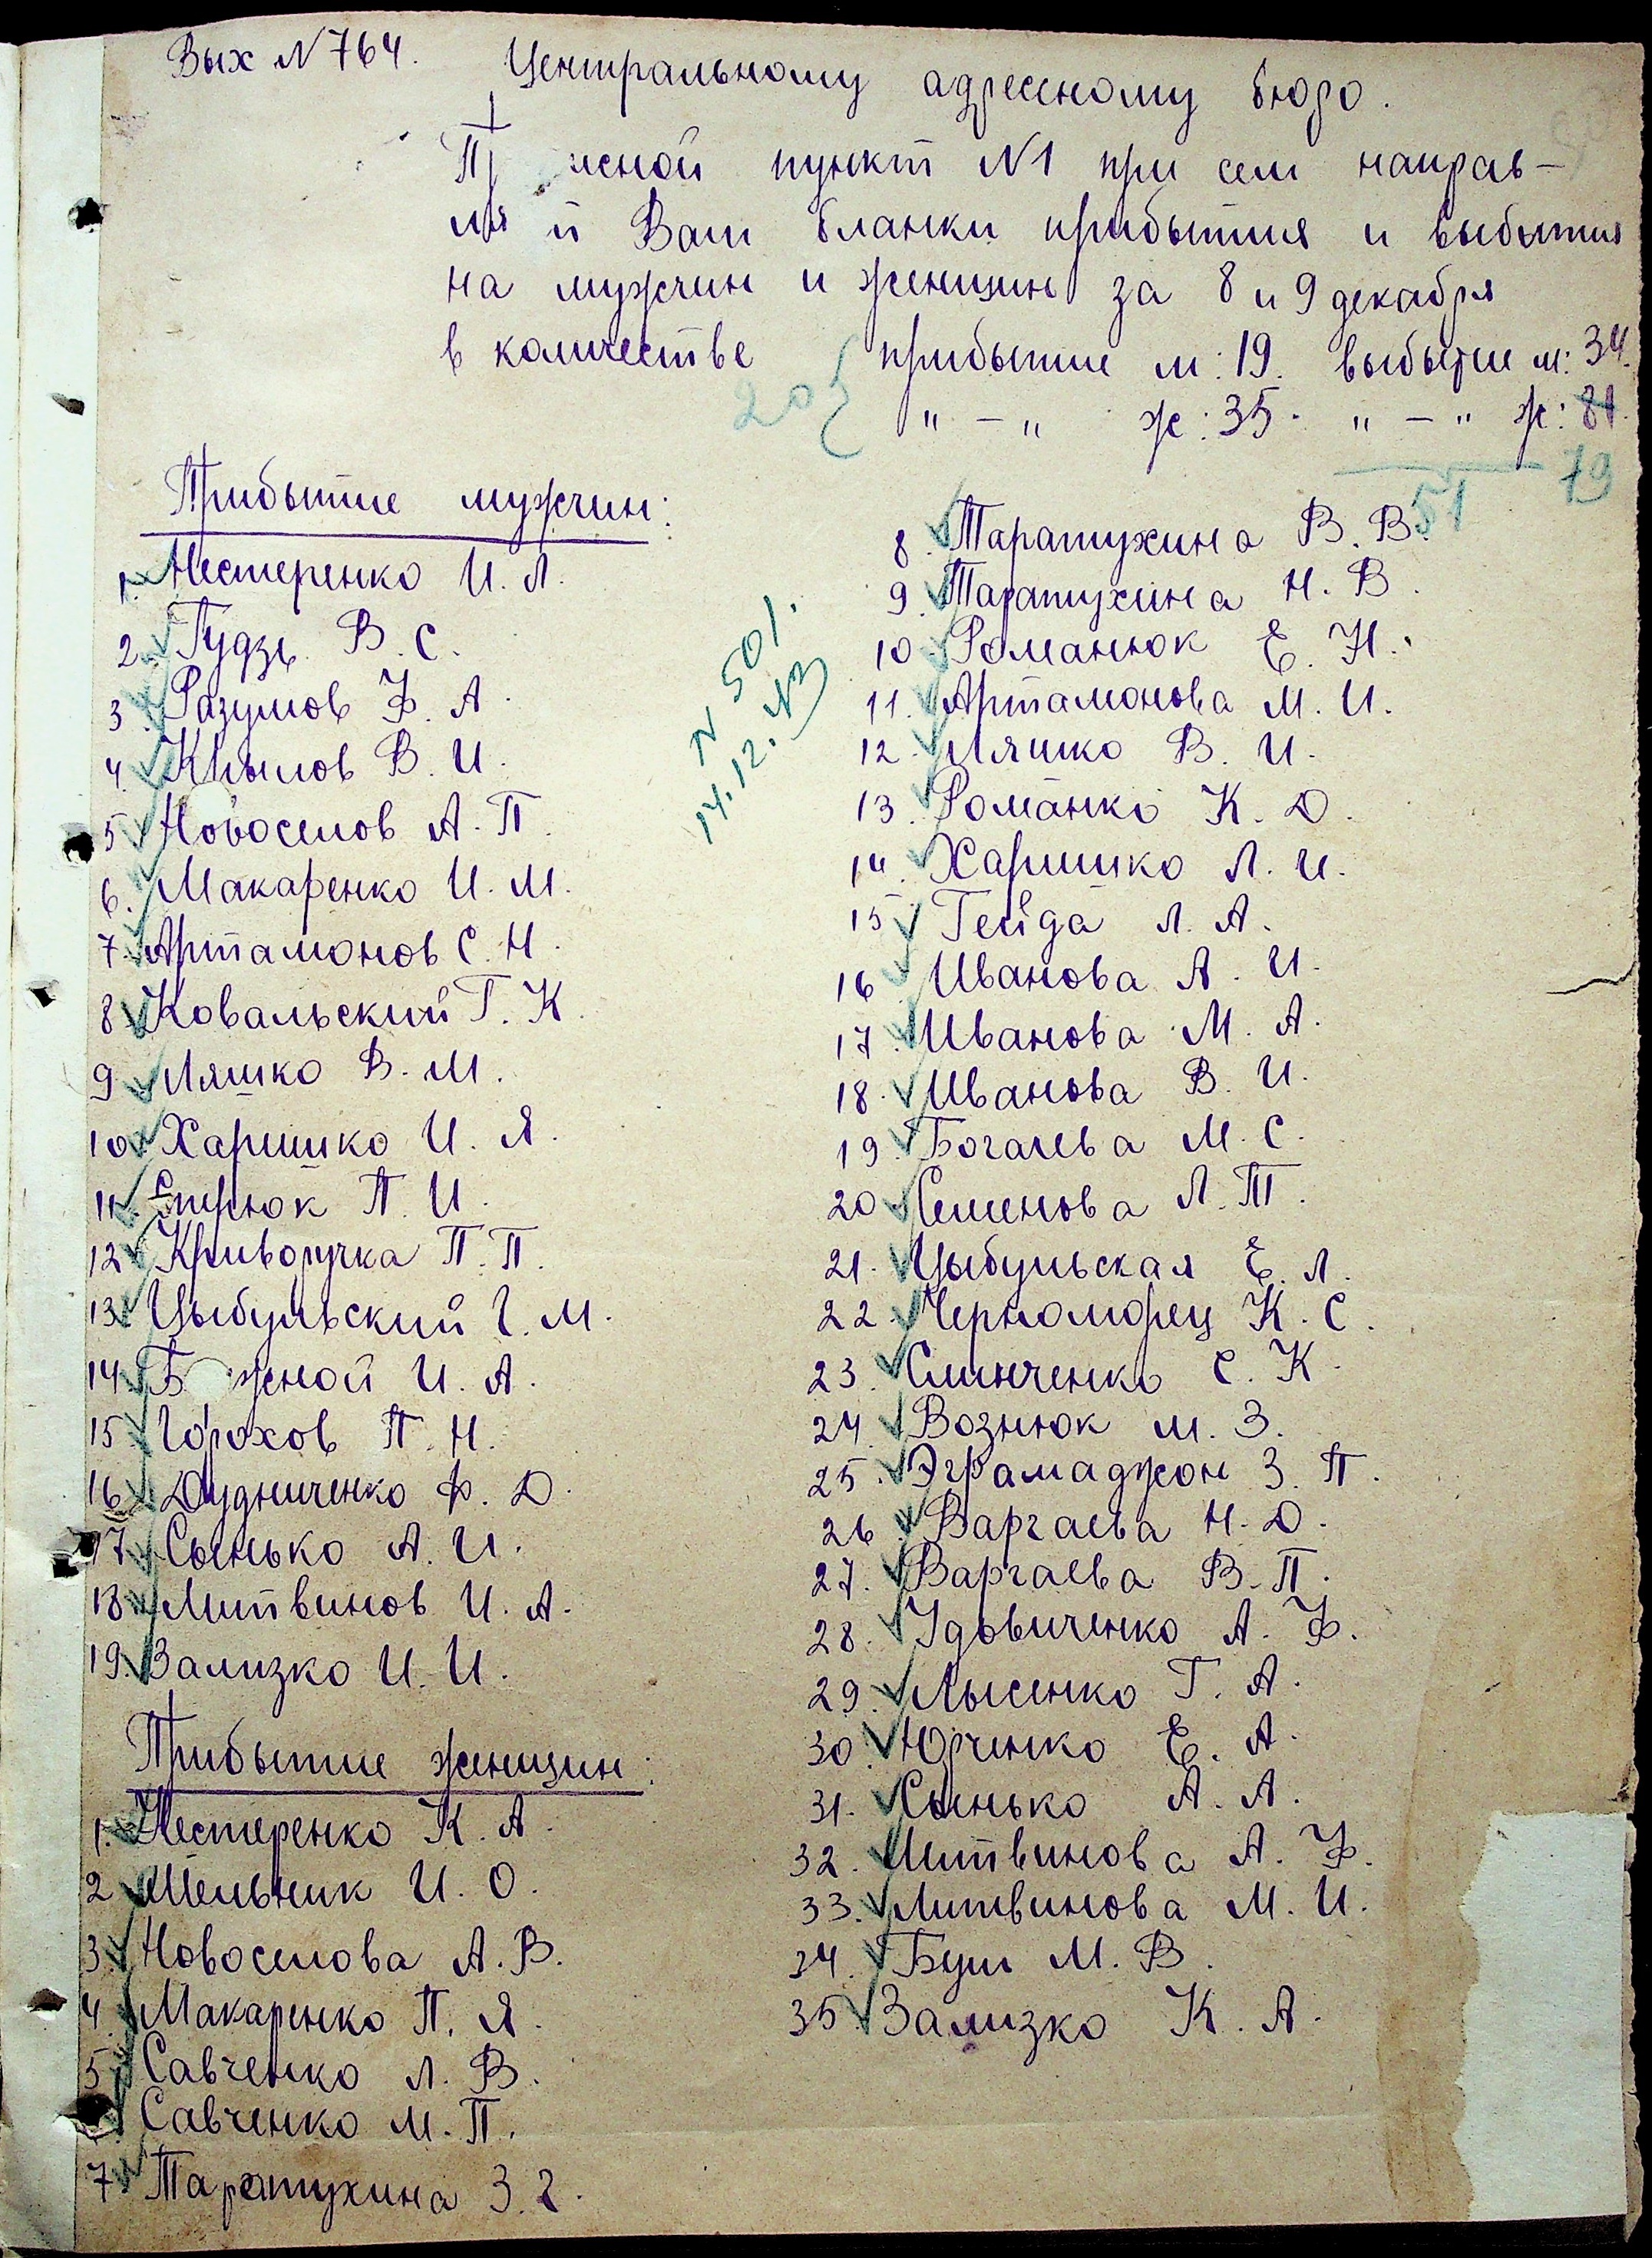 Вых N 764.
Центральному адресному бюро.
пункт N1 при сем направ-
Вам бланки прибытия и выбытия
на мужчин и женщин за 8 и 9 декабря
в количестве прибытие м: 19. выбытие м: 34.
20 { " – " ж: 35. " – " ж: 81.
79
51
Прибытие мужчин:
1. Нестеренко И. Л.
2. Гудзь В. С.
3. Разумов Ф. А.
4. Крылов В. И.
5 Новоселов А. П.
6. Макаренко И. М.
7. Артамонов С. Н.
8 Ковальский Г. К.
9 Ляшко В. М.
10. Харишко И. Я.
11. П. И.
12 Криворучка П. П.
13. Цыбульский Г. М.
14. И. А.
15. Горохов П. Н.
16 Дудниченко Ф. Д.
17. Сынько А. И.
18. Литвинов И. А.
19. Зализко И. И.
Прибытие женщин:
1. Нестеренко К. А.
2 Мельник И. О.
3 Новоселова А. В.
4. Макаренко П. Я.
5 Савченко Л. В.
Савченко М. П.
7 Таратухина З. Г.
N 501.
14.12.
8. Таратухина В. В.
9. Таратухина Н. В.
10 Романюк Е. Н.
11. Артамонова М. И.
12. Ляшко В. И.
13. Романко К. Д.
14. Харишко Л. И.
15 Гейда Л. А.
16 Иванова А. И.
17. Иванова М. А.
18. Иванова В. И.
19. Богачева М. С.
20 Семенова Л. Т.
21. Цыбульская Е. Л.
22. Черноморец К. С.
23. Слинченко Е. К.
24. Вознюк М. З.
25. Эграмаджон З. П.
26 Варгаева Н. Д.
27. Варгаева В. П.
28. Удовиченко А. Ф.
29. Лысенко Г. А.
30. Юрченко Е. А.
31. Сынько А. А.
32. Литвинова А. Ф.
33. Литвинова М. И.
34. Буш М. В.
35 Зализко К. А.